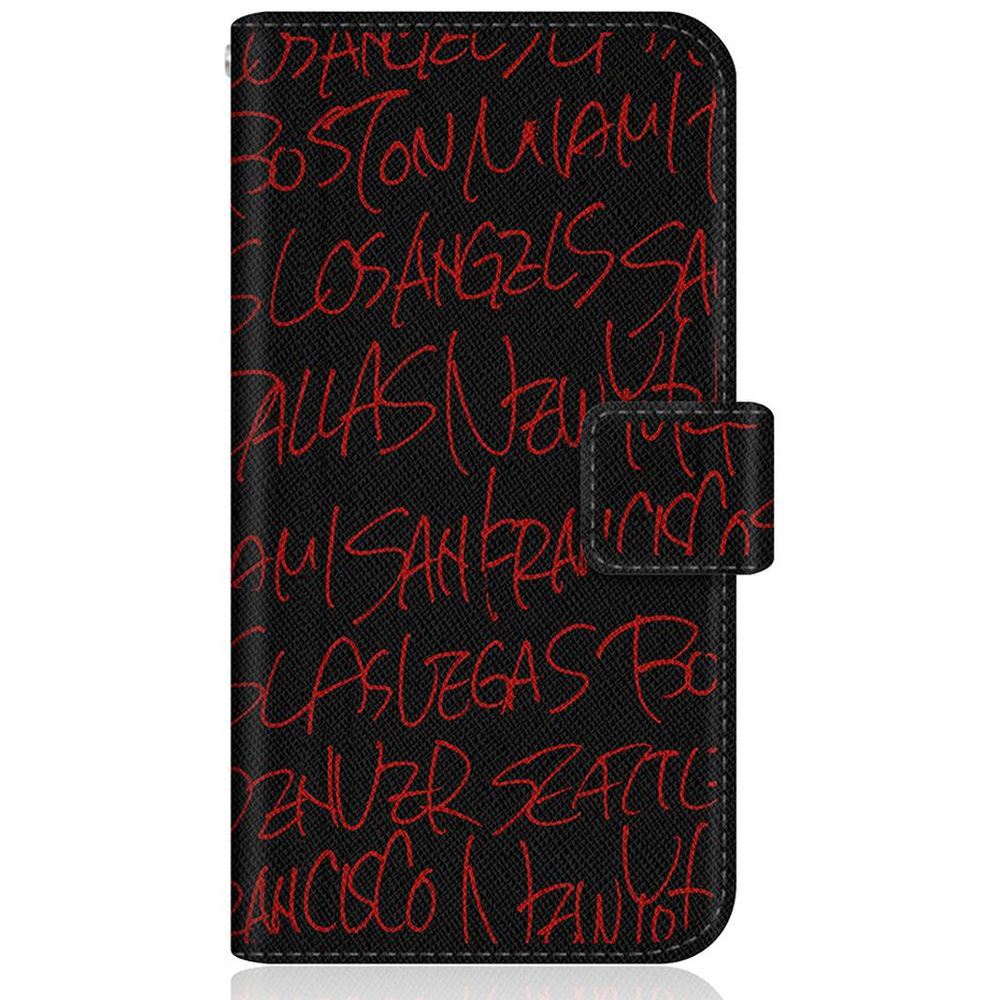 LOSANGELS
BOSTON MIAMI
LOSANGELS SAN
DALLAS NEW
AMI SAN FRANCISCO
S LASVEGAS BO
DENVER SEATTLE
RANCISCO NEWYO